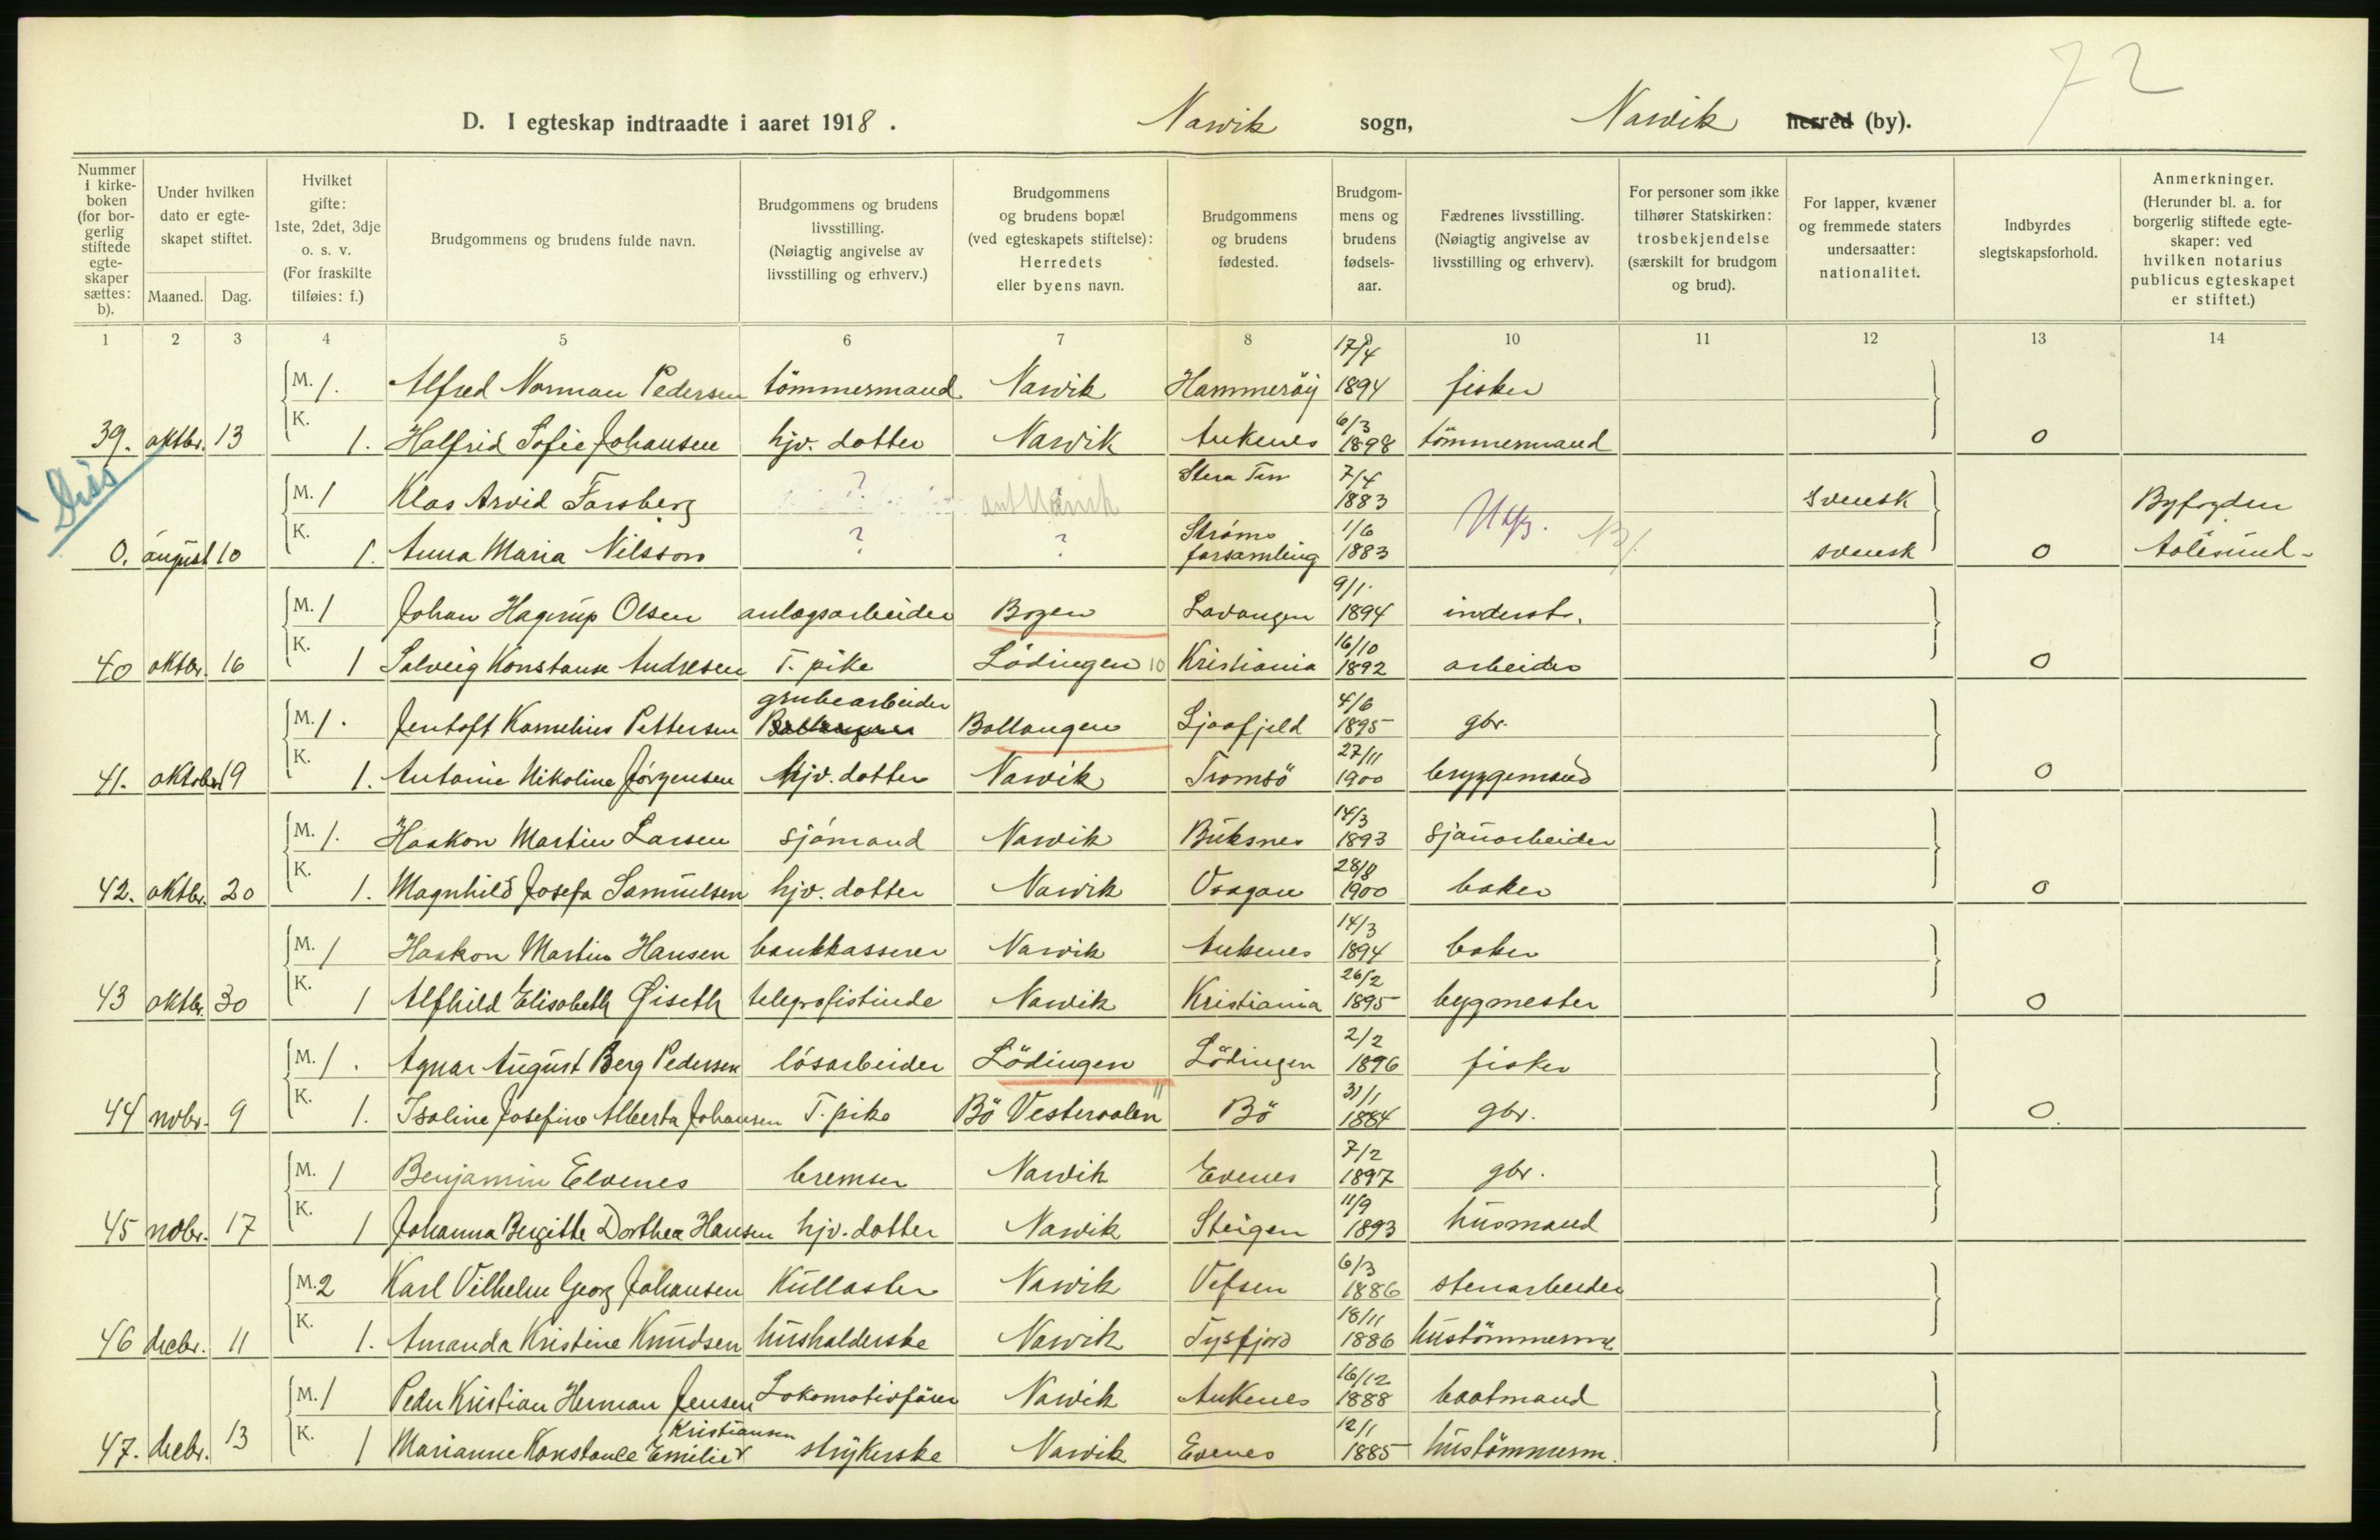 72
D. I egteskap indtraadte i aaret 1918. Narvik sogn, Narvik herred (by).
Nummer i kirkeboken (for borgerlig stiftede egteskaper sættes: b).
Under hvilken dato er egteskapet stiftet.
Maaned. Dag.
Hvilket gifte: 1ste, 2det, 3dje o. s. v. (For fraskilte tilføies: f.)
Brudgommens og brudens fulde navn.
Brudgommens og brudens livsstilling. (Nøiagtig angivelse av livsstilling og erhverv.)
Brudgommens og brudens bopæl (ved egteskapets stiftelse): Herredets eller byens navn.
Brudgommens og brudens fødested.
Brudgommens og brudens fødselsaar.
Fædrenes livsstilling. (Nøiagtig angivelse av livsstilling og erhverv).
For personer som ikke tilhører Statskirken: trosbekjendelse (særskilt for brudgom og brud).
For lapper, kvæner og fremmede staters undersaatter: nationalitet.
Indbyrdes slegtskapsforhold.
Anmerkninger. (Herunder bl. a. for borgerlig stiftede egteskaper: ved hvilken notarius publicus egteskapet er stiftet.)
1 2 3 4 5 6 7 8 9 10 11 12 13 14
M. 1. Alfred Norman Pedersen tömmermand Narvik Hammeröy 17/4 1894 fisker
39. oktbr. 13 K. 1. Halfrid Sofie Johansen hjv. datter Narvik Ankenes 6/3 1898 tömmermand 0
M. 1 Klas Arvid Forsberg ? ant Narvik Stora Tun 7/4 1883 svensk Byfogden
0. august 10 K. 1. Anna Maria Nilsson ? ? Ströms forsamling 1/6 1883 svensk 0 Aalesund
M. 1 Johan Hagerup Olsen anlægsarbeider Bogen Lavangen 9/1 1894 inderst.
40 oktbr. 16 K. 1 Solveig Konstanse Andresen T. pike Lödingen 10 Kristiania 16/10 1892 arbeider 0
M. 1. Jentoft Kornelius Pettersen grubearbeider Ballangen Sjaafjeld 4/6 1895 gbr.
41. oktober 19 K. 1. Antonie Nikoline Jörgensen hjv. datter Narvik Tromsö 27/11 1900 bryggemand 0
M. 1. Haakon Martin Larsen sjömand Narvik Buksnes 14/3 1893 sjauarbeider
42. oktbr. 20 K. 1. Magnhild Josefa Samuelsen hjv. datter Narvik Vaagan 28/8 1900 baker 0
M. 1 Haakon Martin Hansen bankkasserer Narvik Ankenes 14/3 1894 baker
43 oktbr. 30 K. 1 Alfhild Elisabeth Øiseth telegrafistinde Narvik Kristiania 26/2 1895 bygmester 0
M. 1. Agnar August Berg Pedersen lösarbeider Lödingen Lödingen 2/2 1896 fisker
44 novbr. 9 K. 1. Isaline Josefine Alberta Johansen T. pike Bö Vesteraalen 11 Bö 31/1 1884 gbr. 0.
M. 1 Benjamin Elvenes bremser Narvik Evenes 7/2 1897 gbr.
45 novbr. 17 K. 1 Johanna Bergitte Dorthea Hansen hjv. datter Narvik Steigen 11/9 1893 husmand
M. 2 Karl Vilhelm Georg Johansen Kullaster Narvik Vefsen 6/3 1886 stenarbeider
46 decbr. 11 K. 1. Amanda Kristine Knudsen husholderske Narvik Tysfjord 18/11 1886 hustömmerm.
M. 1 Peder Kristian Herman Jensen Lokomotivförer Narvik Ankenes 16/12 1888 baatmand
47. decbr. 13 K. 1 Marianne Konstance Emilie Kristiansen strykerske Narvik Evenes 12/1 1885 hustömmerm.